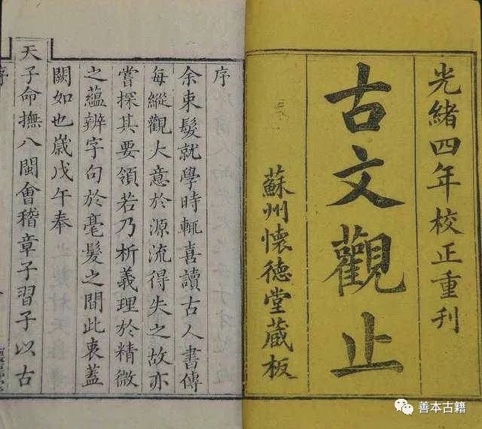 光緒四年校正重刊
古文觀止
蘇州懷德堂藏板
序
余束髮就學時輒喜讀古人書傳
每縱觀大意於源流得失之故亦
嘗探其要領若乃析義理於精微
之蘊辨字句於毫髮之間此衷蓋
闕如也嵗戊午奉
天子命撫八閩會稽章子習子以古
善本古籍